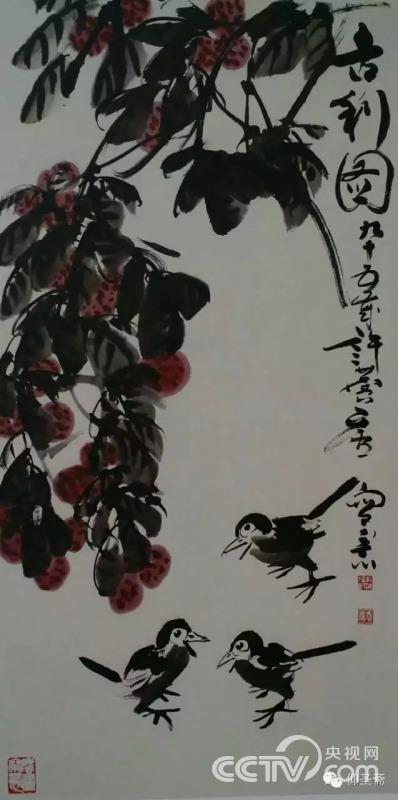 吉利图
九十五岁许麟庐
央视网
CCTV.com
仰圣斋